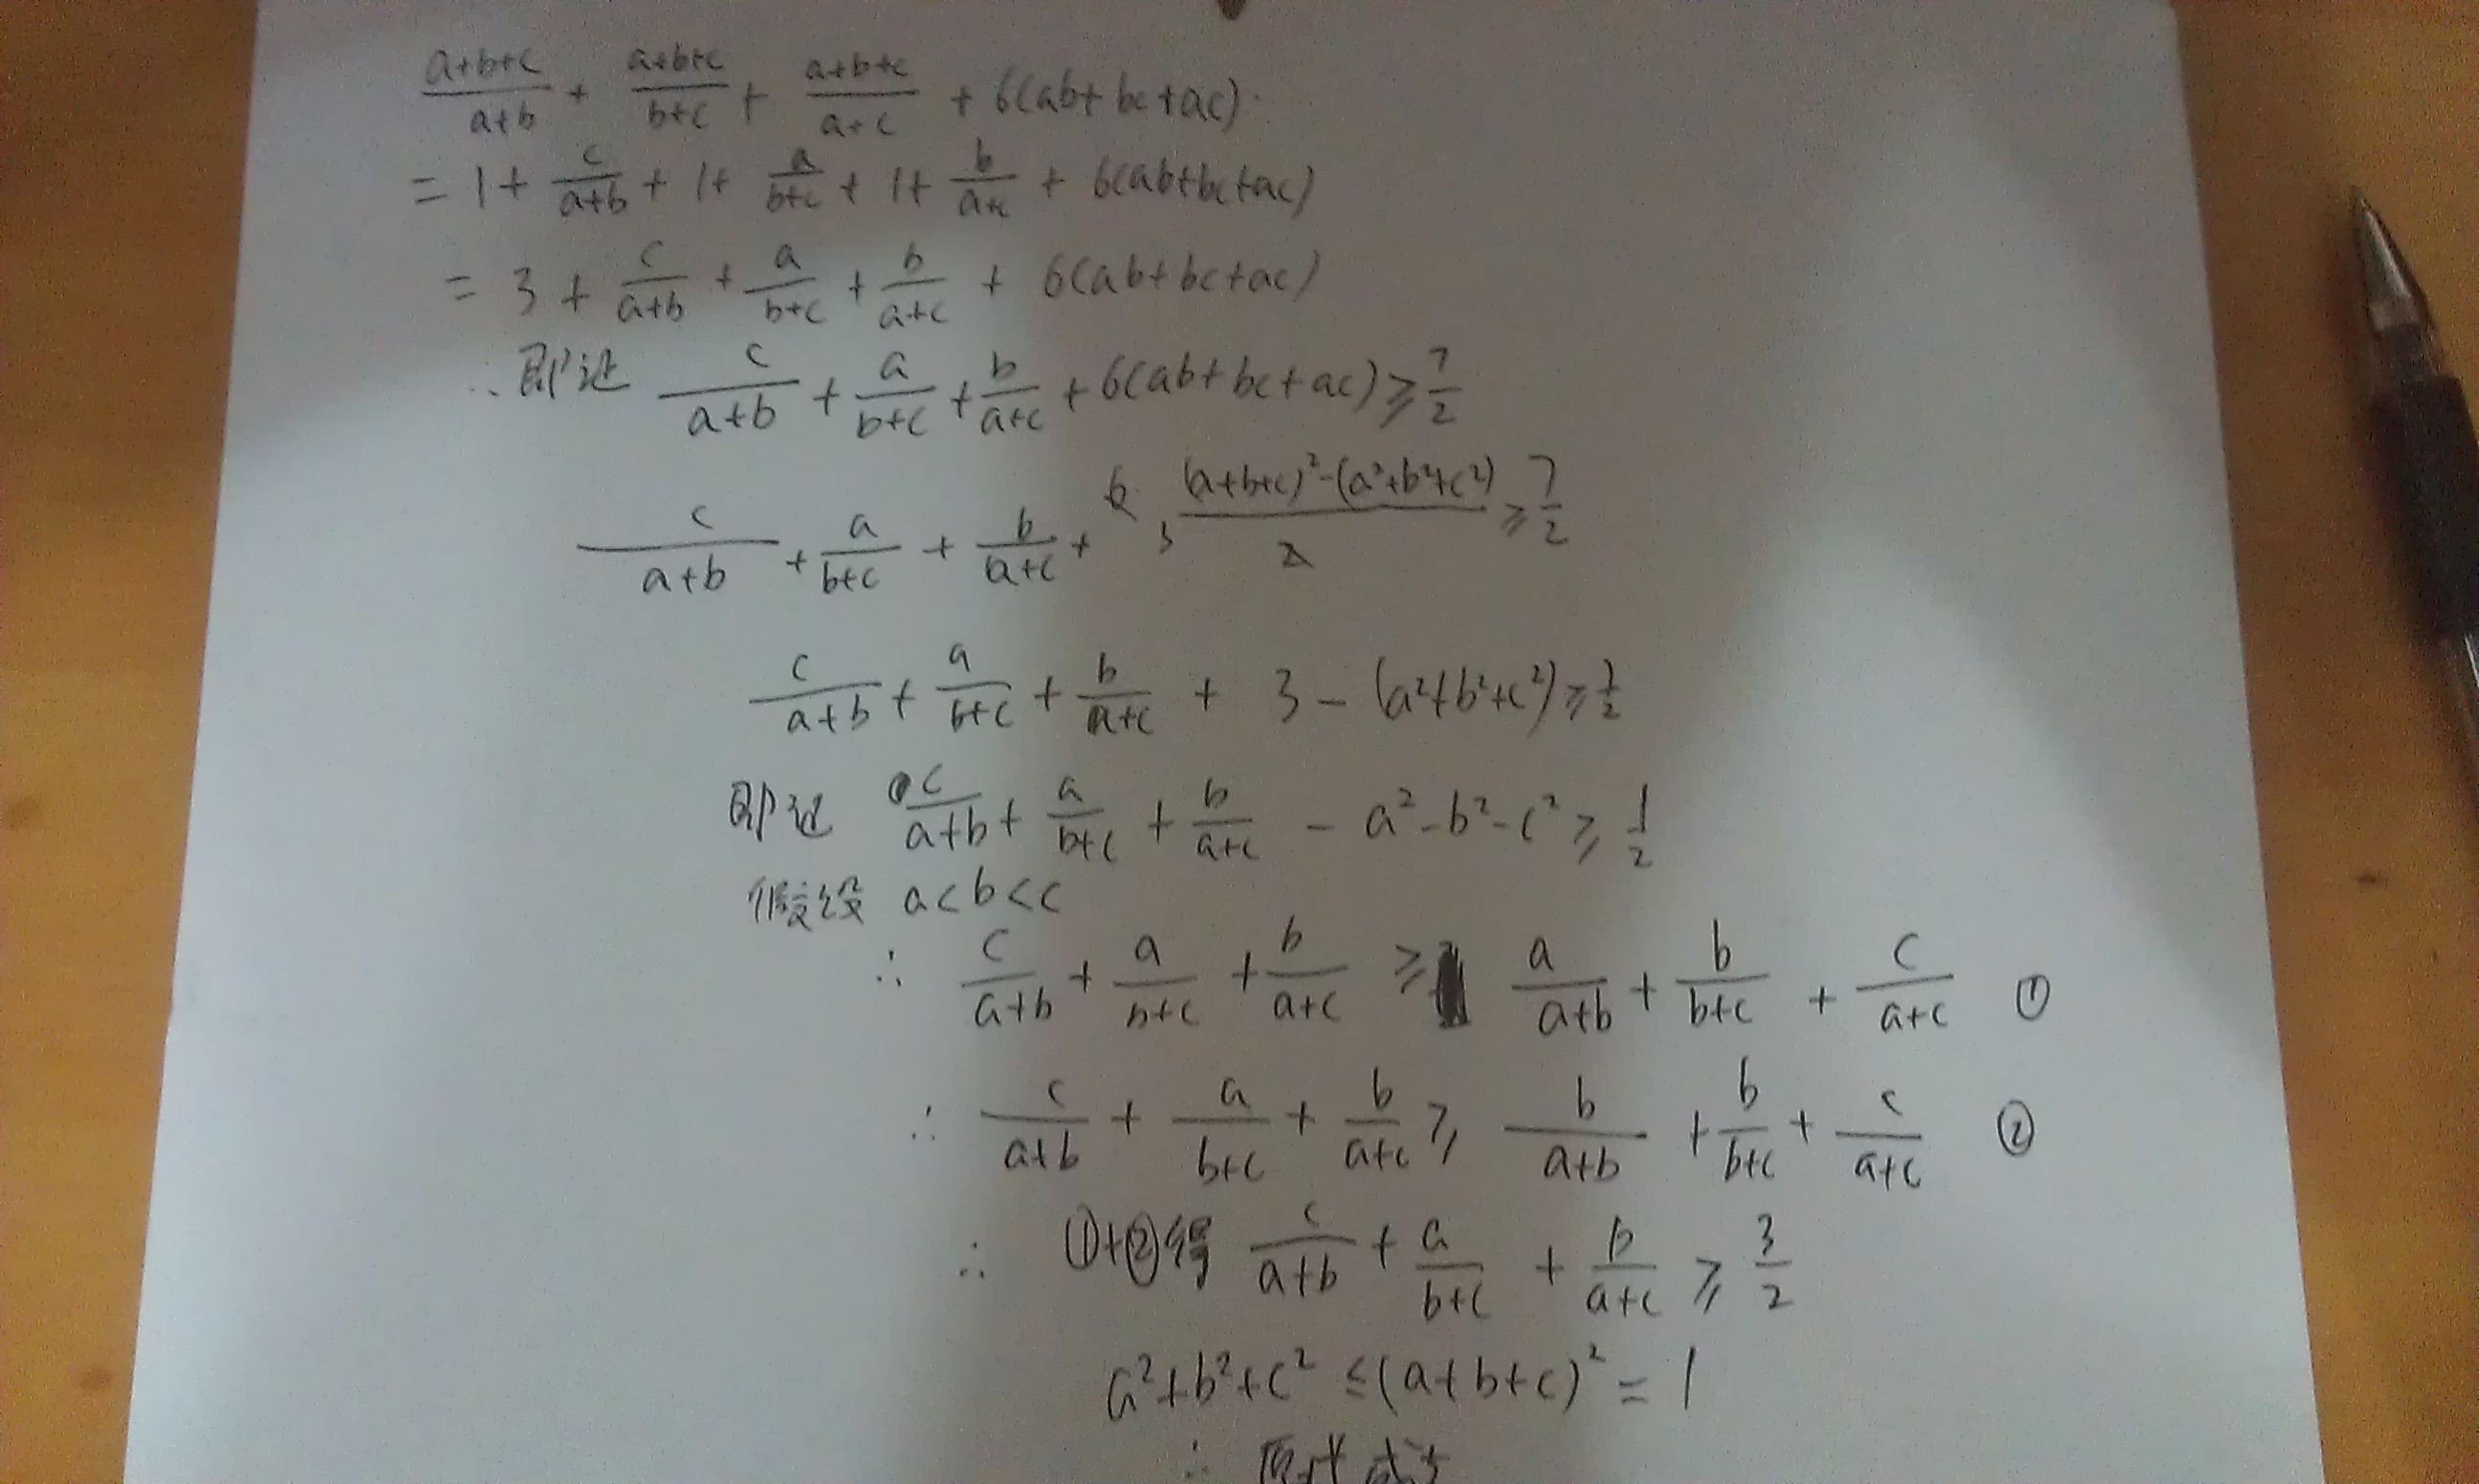 (a+b+c)/(a+b) + (a+b+c)/(b+c) + (a+b+c)/(a+c) + 6(ab+bc+ac).
= 1 + c/(a+b) + 1 + a/(b+c) + 1 + b/(a+c) + 6(ab+bc+ac)
= 3 + c/(a+b) + a/(b+c) + b/(a+c) + 6(ab+bc+ac)
∴ 即证 c/(a+b) + a/(b+c) + b/(a+c) + 6(ab+bc+ac) ≥ 7/2
c/(a+b) + a/(b+c) + b/(a+c) + 6· ((a+b+c)²-(a²+b²+c²))/2 ≥ 7/2
c/(a+b) + a/(b+c) + b/(a+c) + 3 - (a²+b²+c²) ≥ 7/2
即证 c/(a+b) + a/(b+c) + b/(a+c) - a²-b²-c² ≥ 1/2
假设 a<b<c
∴ c/(a+b) + a/(b+c) + b/(a+c) ≥ a/(a+b) + b/(b+c) + c/(a+c) ①
∴ c/(a+b) + a/(b+c) + b/(a+c) ≥ b/(a+b) + b/(b+c) + c/(a+c) ②
∴ ①+②得 c/(a+b) + a/(b+c) + b/(a+c) ≥ 3/2
a²+b²+c² ≤ (a+b+c)² = 1
∴ 原式成立